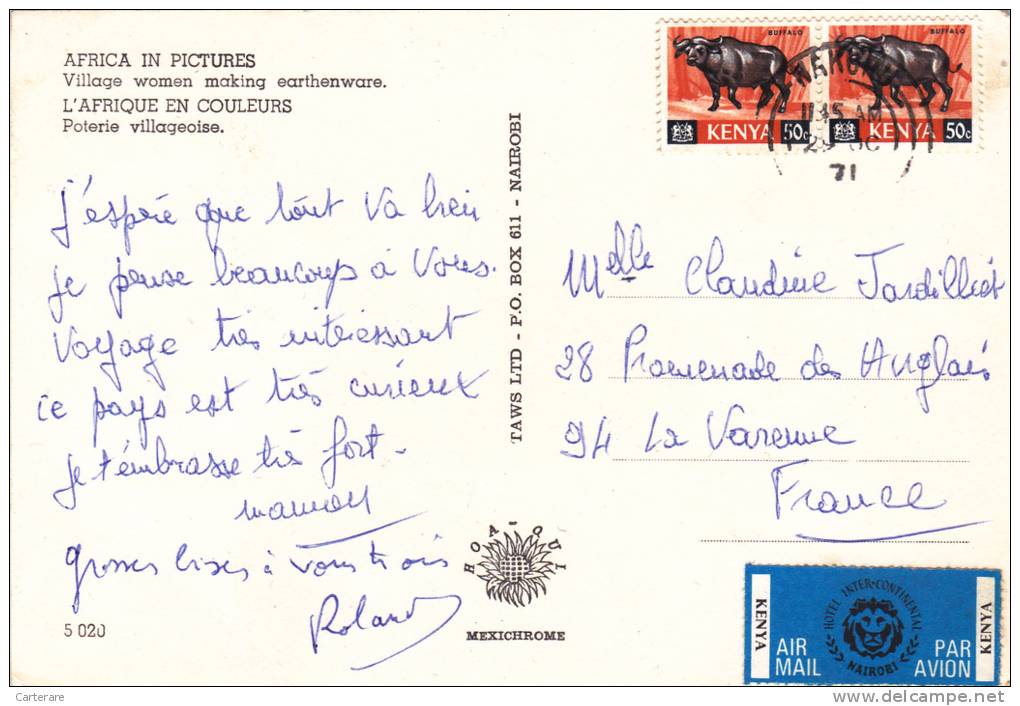 AFRICA IN PICTURES
Village women making earthenware.
L'AFRIQUE EN COULEURS
Poterie villageoise.
J'espère que tout va bien
je pense beaucoup à vous.
Voyage très intéressant
ce pays est très curieux
je t'embrasse très fort.
maman
grosses bises à vous trois
Roland
5 020
TAWS LTD - P.O. BOX 611 - NAIROBI
HOA-QUI
MEXICHROME
BUFFALO
KENYA 50c
BUFFALO
KENYA 50c
11 45 AM
29 OC
71
Melle Claudine Jardilliet
28 Promenade des Anglais
94 La Varenne
France
KENYA
AIR MAIL
HOTEL INTER-CONTINENTAL
NAIROBI
PAR AVION
KENYA
Carterare
http://www.delcampe.net